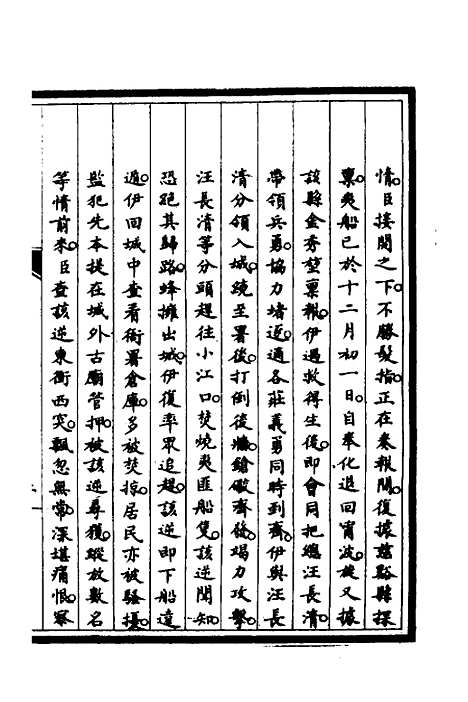 情臣接閱之下不勝髮指正在奏報間復據慈谿縣探
稟夷船已於十二月初一日自奉化退回甯波旋又據
該縣金秀堃稟報伊遇救得生後即會同把總汪長清
帶領兵勇協力堵逆適各莊義勇同時到齊伊與汪長
清分領入城繞至署後打倒後牆鎗礮齊發竭力攻擊
汪長清等分頭趕往小江口焚燒夷匪船隻該逆聞知
恐跑其歸路蜂擁出城伊復率眾追趕該逆即下船遠
遁伊回城中查看衙署倉庫多被焚掠居民亦被騷擾
監犯先本提在城外古廟管押被該逆尋獲蹤放數名
等情前來臣查該逆東衝西突飄忽無常深堪痛恨察